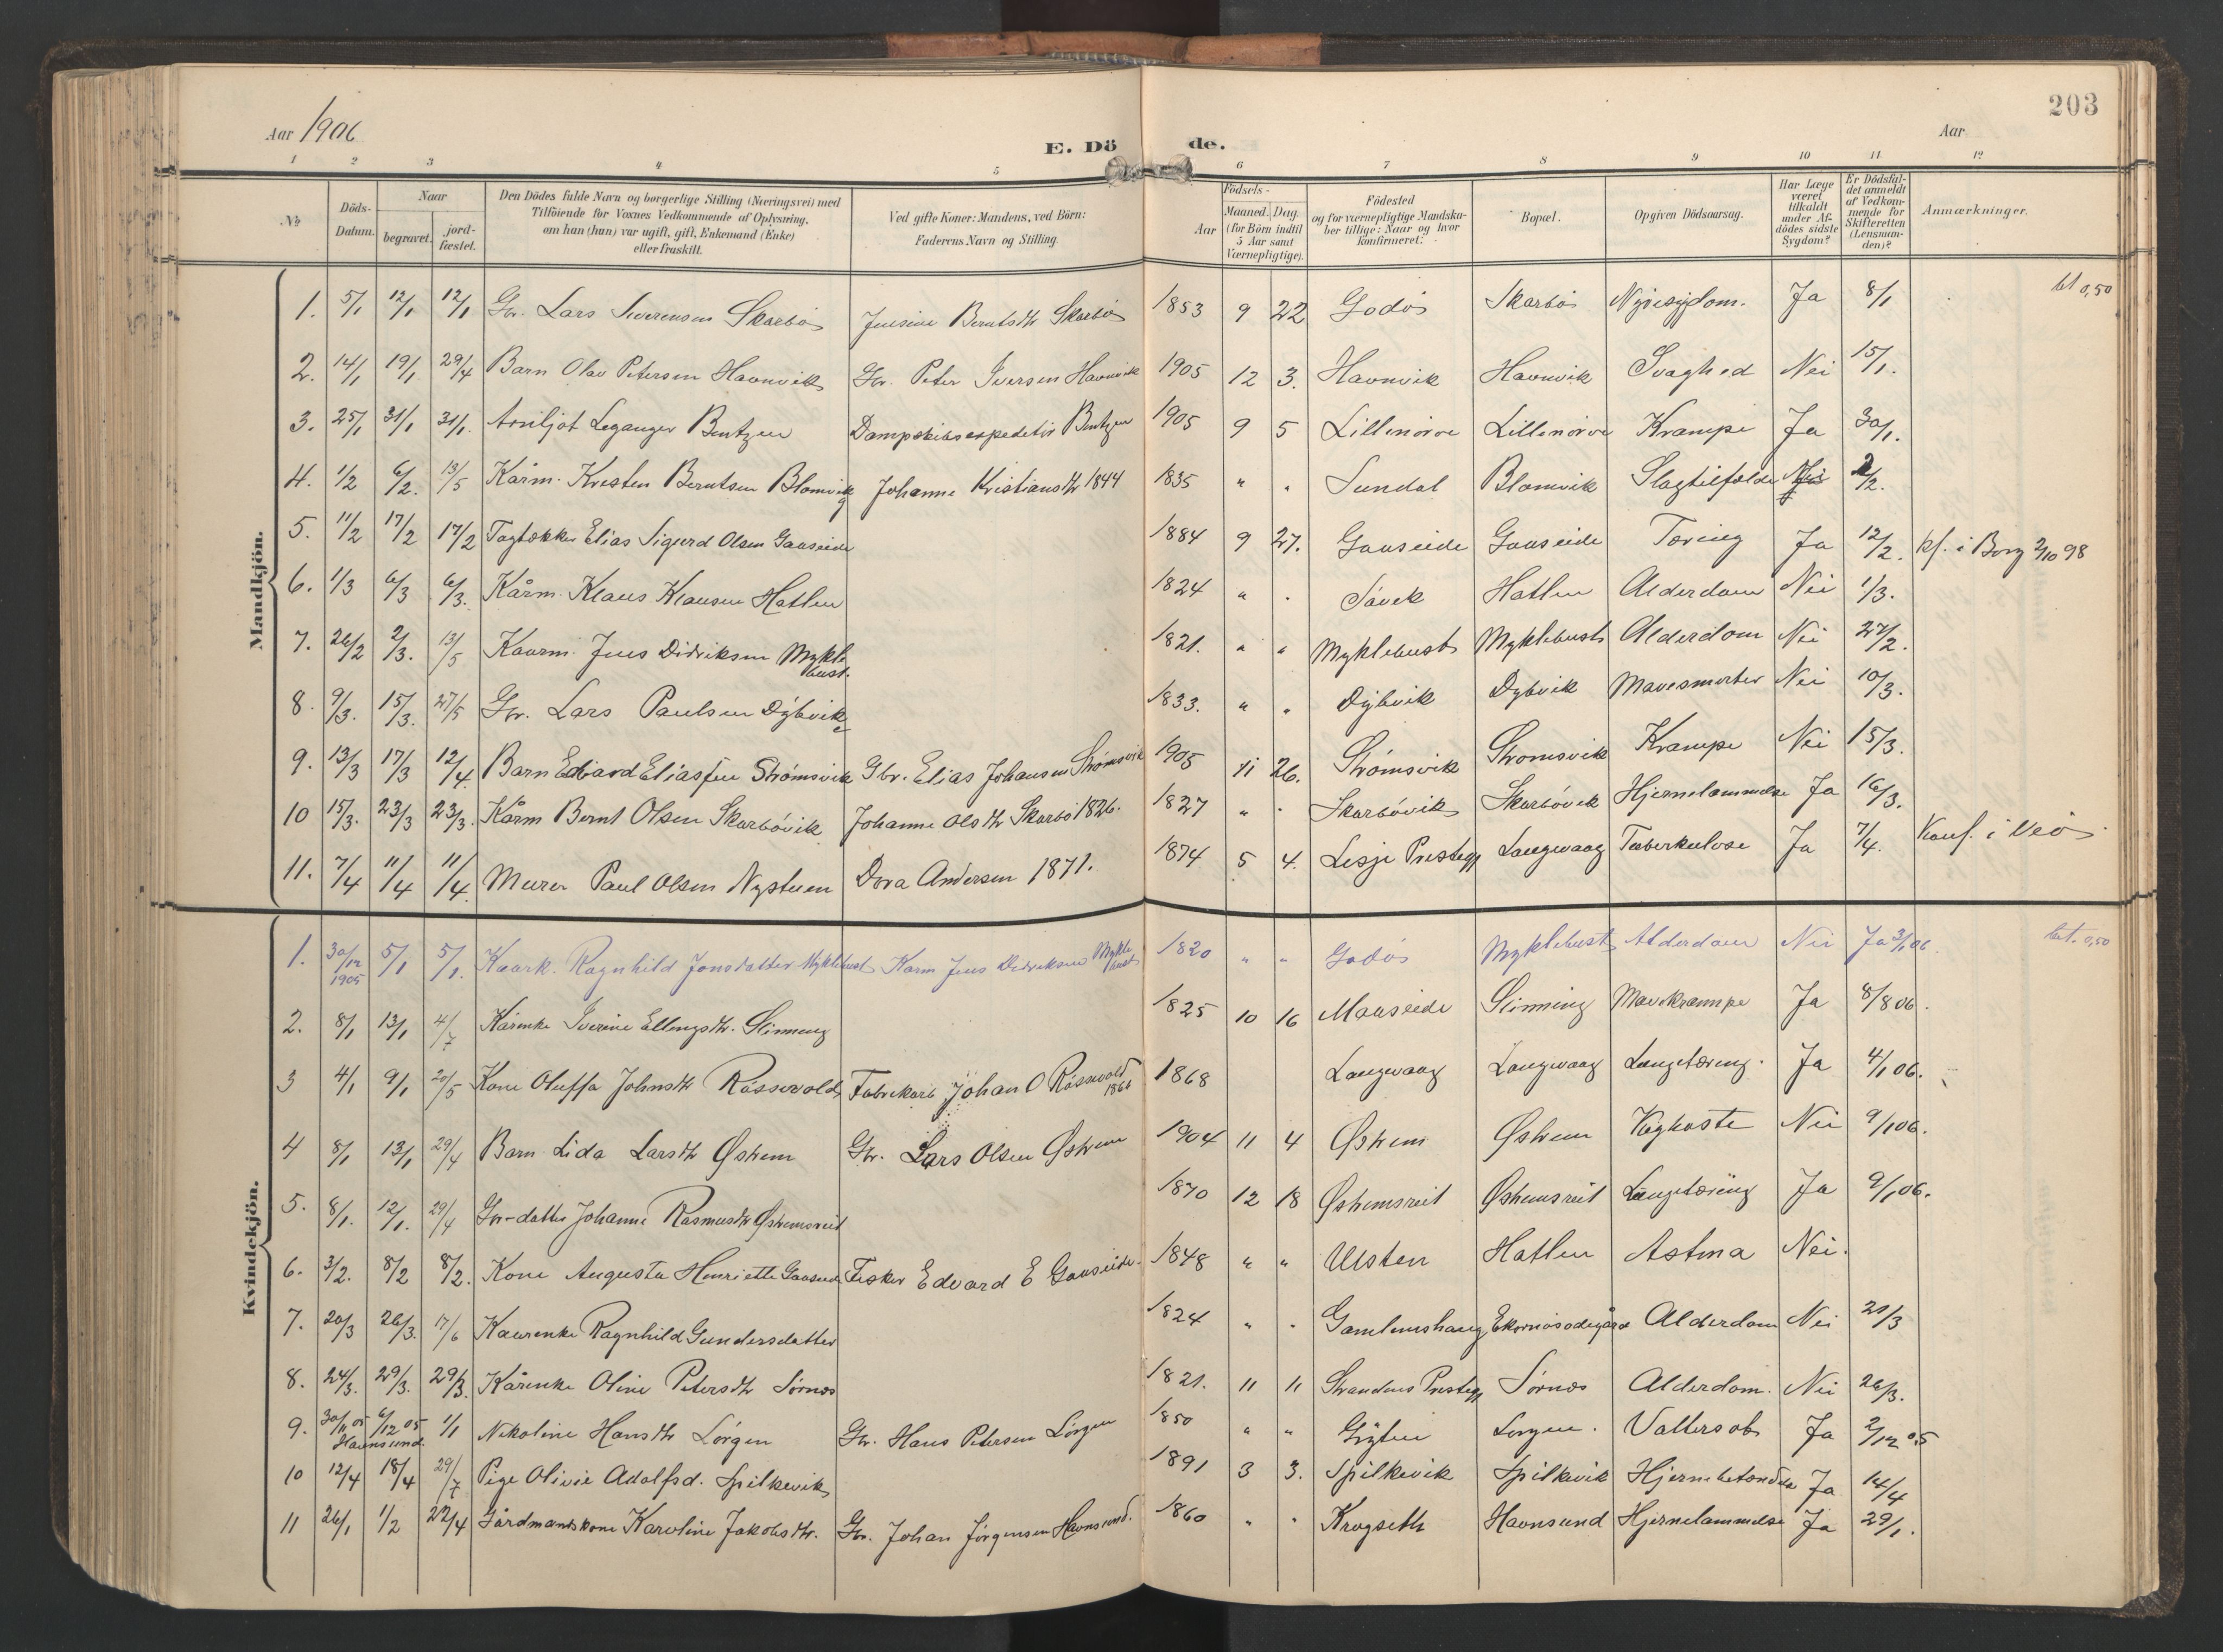 203
Aar 1906
E. Dö de.
Aar
1 2 3 4 5 6 7 8 9 10 11 12
№
Döds-Datum.
Naar
begravet.
jord-fæstet.
Den Dödes fulde Navn og borgerlige Stilling (Næringsvei) med
Tilföiende for Voxnes Vedkommende af Oplysning,
om han (hun) var ugift, gift, Enkemand (Enke)
eller fraskilt.
Ved gifte Koner: Mandens, ved Börn:
Faderens Navn og Stilling.
Födsels-
Aar
Maaned. Dag.
(for Börn indtil
5 Aar samt
Værnepligtige).
Födested
og for værnepligtige Mandska-
ber tillige: Naar og hvor
konfirmeret.
Bopæl.
Opgiven Dödsaarsag.
Har Læge
været
tilkaldt
under Af-
dödes sidste
Sygdom?
Er Dödsfal-
det anmeldt
af Vedkom-
mende for
Skifteretten
(Lensman-
den)?
Anmærkninger.
Mandkjön.
1. 5/1 12/1 12/1 Gbr. Lars Severensen Skarbø Jensine Berntsdtr Skarbø 1853 9 22 Godø Skarbø Nyresygdom. Ja 8/1 bet 0,50
2. 14/1 19/1 29/4 Barn Olav Petersen Havnvik Gbr. Peter Iversen Havnvik 1905 12 3. Havnvik Havnvik Svaghed Nei 15/1.
3. 25/1 31/1 31/1. Arnljot Leganger Bentzen Dampskibsexpeditör Bentzen 1905 9 5 Lillenörve Lillenörve Krampe Ja 30/1.
4. 1/2 6/2. 13/5 Kårm. Kresten Berntsen Blomvik Johanne Kristiansdtr 1844 1835 " " Sundal Blomvik Slagtilfælde 2/2.
5. 11/2 17/2 17/2 Tagtækker Elias Sigurd Olsen Gaaseide 1884 9 27. Gaaseide Gaaseide Tæring Ja 12/2. kf. i Borg 2/10 98
6. 1/3 6/3 6/3. Kårm. Klaus Klausen Hatlen 1824 " " Sävek Hatlen Alderdom Nei 1/3.
7. 26/2 2/3. 13/5 Kaarm. Jens Didriksen Myklebust. 1821. " " Myklebust Myklebust Alderdom Nei 27/2.
8. 9/3. 15/3. 27/5 Gbr. Lars Paulsen Dybvik 1833. " " Dybvik Dybvik Mavesmerter Nei 10/3.
9. 13/3 17/3 12/4. Barn Edvard Eliassen Strømsvik Gbr. Elias Johansen Strømsvik 1905 11 26. Strømsvik Strømsvik Krampe Nei 15/3.
10 15/3. 23/3 23/3. Kårm Bernt Olsen Skarbövik Johanne Olsdtr Skarbö 1826. 1827 " " Skarbövik Skarbövik Hjernelammelse Ja 16/3.
11. 7/4 11/4 11/4. Murer Paul Olsen Nystuen Dora Andersen 1871. 1874 5 4. Lesje Prestegj Langevaag Tuberkulose Ja 7/4. Konf. i Veö.
Kvindekjön.
1. 30/12 1905 5/1 5/1. Kaark. Ragnhild Jonsdatter Myklebust Karm Jens Didriksen Myklebust 1820 " " Godø Myklebust Alderdom Nei Ja 3/1 06. bet. 0,50
2. 8/1 13/1 4/7 Kårenke Iverine Ellingsdtr. Slinning 1825 10 16 Maaseide Slinning Mavekrampe Ja 8/8 06.
3 4/1 9/1 20/5 Kone Oluffa Johnsdtr Råssevold Fabrikarb Johan O Råssevold 1866 1868 Langevaag Langevaag Lungetæring. Ja 4/1 06.
4 8/1 13/1 29/4 Barn Lida Larsdtr Østrem Gbr. Lars Olsen Østrem 1904 11 4 Østrem Østrem Kighoste Nei 9/1 06.
5. 8/1. 12/1. 29/4 Gbr-datter Johanne Rasmusdtr Østremsreit 1870 12 18 Østremsreit Østremsreit Lungetæring Ja 9/1 06.
6. 3/2. 8/2 8/2. Kone Augusta Henriette Gaaseide Fisker Edvard E Gaaseide. 1848 " " Ulsten Hatlen Astma Nei.
7. 20/3 26/3. 17/6 Kaarenke Ragnhild Gundersdatter 1824 " " Gamlemshaug Ekornæsødegård Alderdom Nei 21/3
8. 24/3. 29/3. 29/3. Kårenke Oline Petersdtr Sørnes 1821. 11 11 Strandens Prestegj Sørnes Alderdom. Nei 26/3.
9. 30/11 05 6/12 05 Havnsund. 1/1 Nikoline Hansdtr Lörgen Gbr. Hans Petersen Lörgen 1850 " " Lörgen. Vattersot Ja 2/12 05
10 12/4 18/4 29/7 Pige Olivie Adolfsd. Spilkevik 1891 3 3. Spilkevik Spilkevik Hjernebetændelse Ja 14/4
11 26/1 1/2 22/4 Gårdmandskone Karoline Jakobsdtr. Gbr. Johan Jørgensen Havnsund. 1860 " " Krogseth Havnsund Hjernelammelse Ja 29/1.